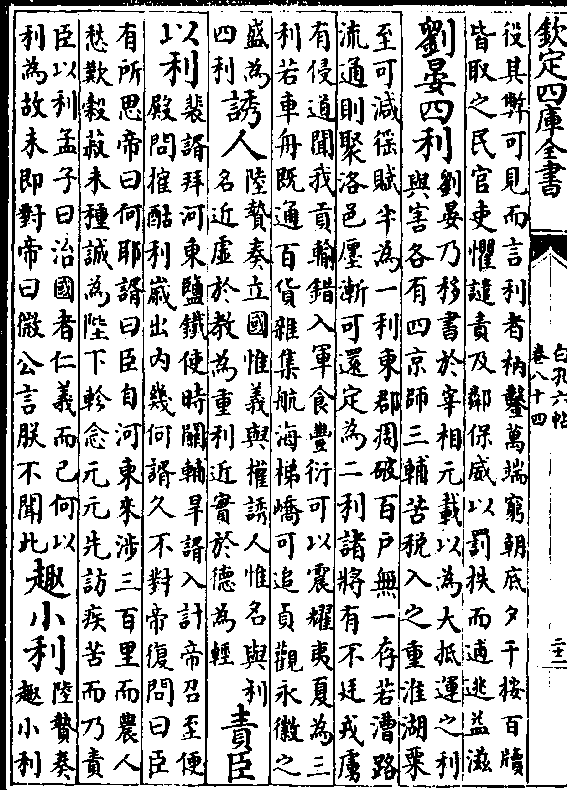 欽定四庫全書
白孔六帖
卷八十四
二十二
役其弊可見而言利者枘鑿萬端窮朝底夕千按百牘
皆取之民官吏懼譴責及鄰保威以罰抶而逋逃益滋
劉晏四利
劉晏乃移書於宰相元載以為大抵運之利
與害各有四京師三輔苦税入之重淮湖粟
至可減徭賦半為一利東郡凋破百戶無一存若漕路
流通則聚洛邑廛漸可還定為二利諸將有不廷戎虜
有侵道聞我貢輸錯入軍食豐衍可以震耀夷夏為三
利若車舟既通百貨雜集航海梯嶠可追貞觀永徽之
盛為
四利
誘人
陸贄奏立國惟義與權誘人惟名與利
名近虛於教為重利近實於德為輕
責臣
以利
裴諝拜河東鹽鐵使時關輔旱諝入計帝召至便
殿問搉酤利歲出内幾何諝久不對帝復問曰臣
有所思帝曰何耶諝曰臣自河東來涉三百里而農人
愁歎穀菽未種誠為陛下軫念元元先訪疾苦而乃責
臣以利孟子曰治國者仁義而已何以
利為故未即對帝曰微公言朕不聞此
趣小利
陸贄奏
趣小利